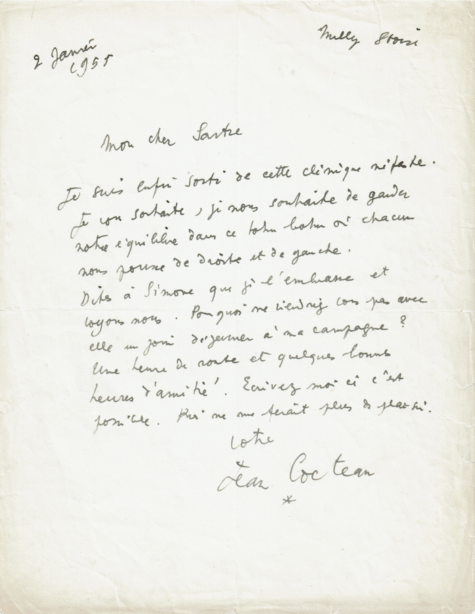 2 Janvier
1955
Milly S et oise
Mon cher Sartre
Je suis enfin sorti de cette clinique néfaste.
Je vous souhaite, je nous souhaite de garder
notre équilibre dans ce tohu bohu où chacun
nous pousse de droite et de gauche.
Dites à Simone que je l'embrasse et
voyons nous. Pourquoi ne viendriez vous pas avec
elle un jour déjeuner à ma campagne ?
Une heure de route et quelques bonnes
heures d'amitié. Ecrivez moi si c'est
possible. Rien ne me ferait plus de plaisir.
Votre
Jean Cocteau
*